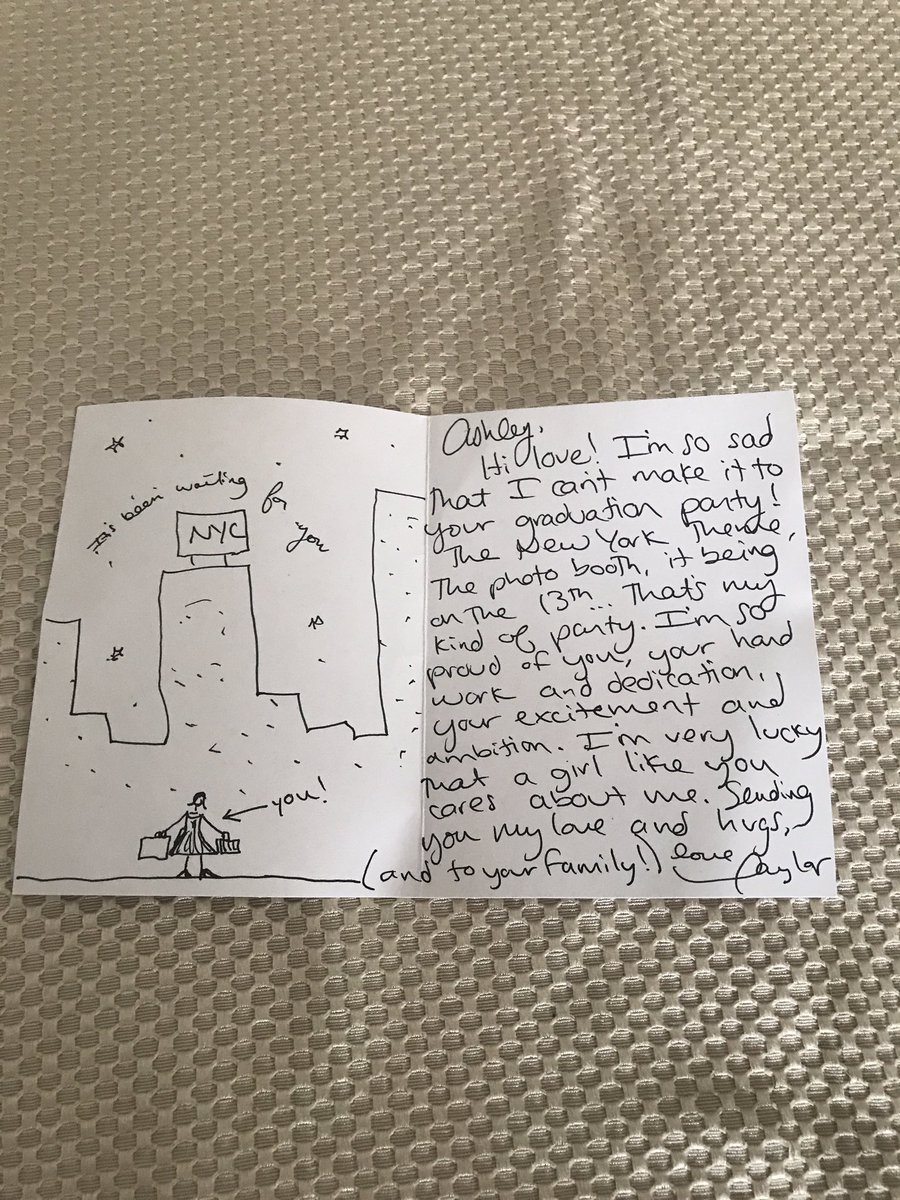 It's been waiting for you
NYC
you!
Ashley,
Hi love! I'm so sad
that I can't make it to
your graduation party!
The New York Theme,
The photo booth, it being
on the 13th... That's my
kind of party. I'm so
proud of you, your hard
work and dedication,
your excitement and
ambition. I'm very lucky
that a girl like you
cares about me. Sending
you my love and hugs,
(and to your family!) love Taylor